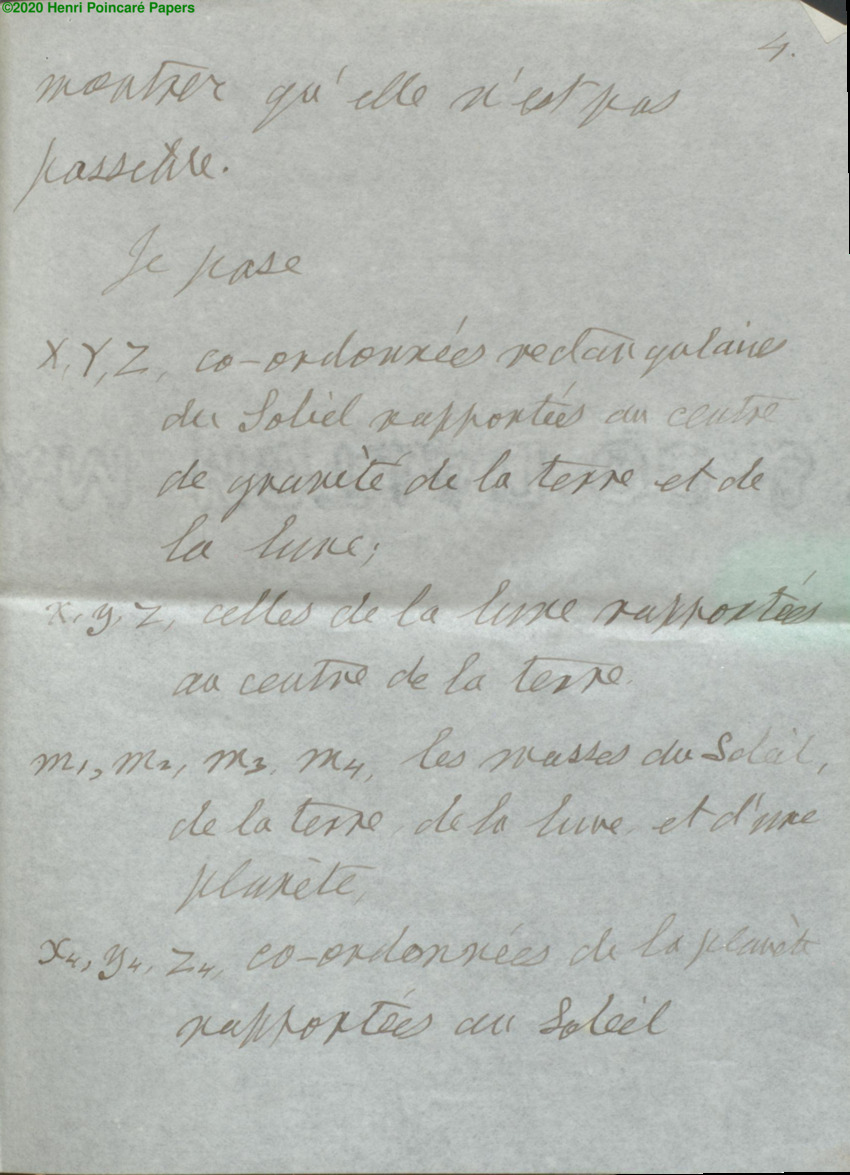 ©2020 Henri Poincaré Papers
4.
montrer qu'elle n'est pas
possible.
Je pose
X, Y, Z, co-ordonnées rectangulaires
du Soleil rapportées au centre
de gravité de la terre et de
la lune;
x, y, z, celles de la lune rapportées
au centre de la terre.
m1, m2, m3, m4, les masses du Soleil,
de la terre, de la lune, et d'une
planète,
x4, y4, z4, co-ordonnées de la planète
rapportées au Soleil